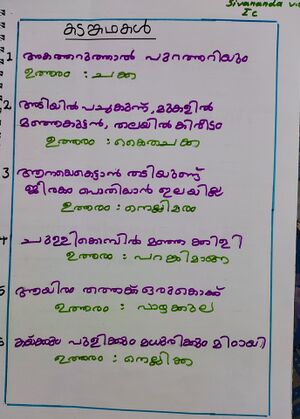 Sivananda
I C
കടങ്കഥകൾ
1 അകത്തറുത്താൽ പുറത്തറിയും
ഉത്തരം : ചക്ക
2. അടിയിൽ പച്ചകുന്ന്, മുകളിൽ
മഞ്ഞകുട്ടൻ, തലയിൽ കിരീടം
ഉത്തരം : കൈതചക്ക
3 ആനയെകെട്ടാൻ തടിയുണ്ട്
ജീരകം പൊതിയാൻ ഇലയില്ല
ഉത്തരം : നെല്ലിമരം
4 ചുള്ളികൊമ്പിൽ മഞ്ഞ കിളി
ഉത്തരം : പറങ്കിമാങ്ങ
5 ആയിരം തത്തക്ക് ഒരുകൊക്ക്
ഉത്തരം : വാഴക്കുല
കയ്ക്കും പുളിക്കും മധുരിക്കും മിഠായി
ഉത്തരം : നെല്ലിക്ക